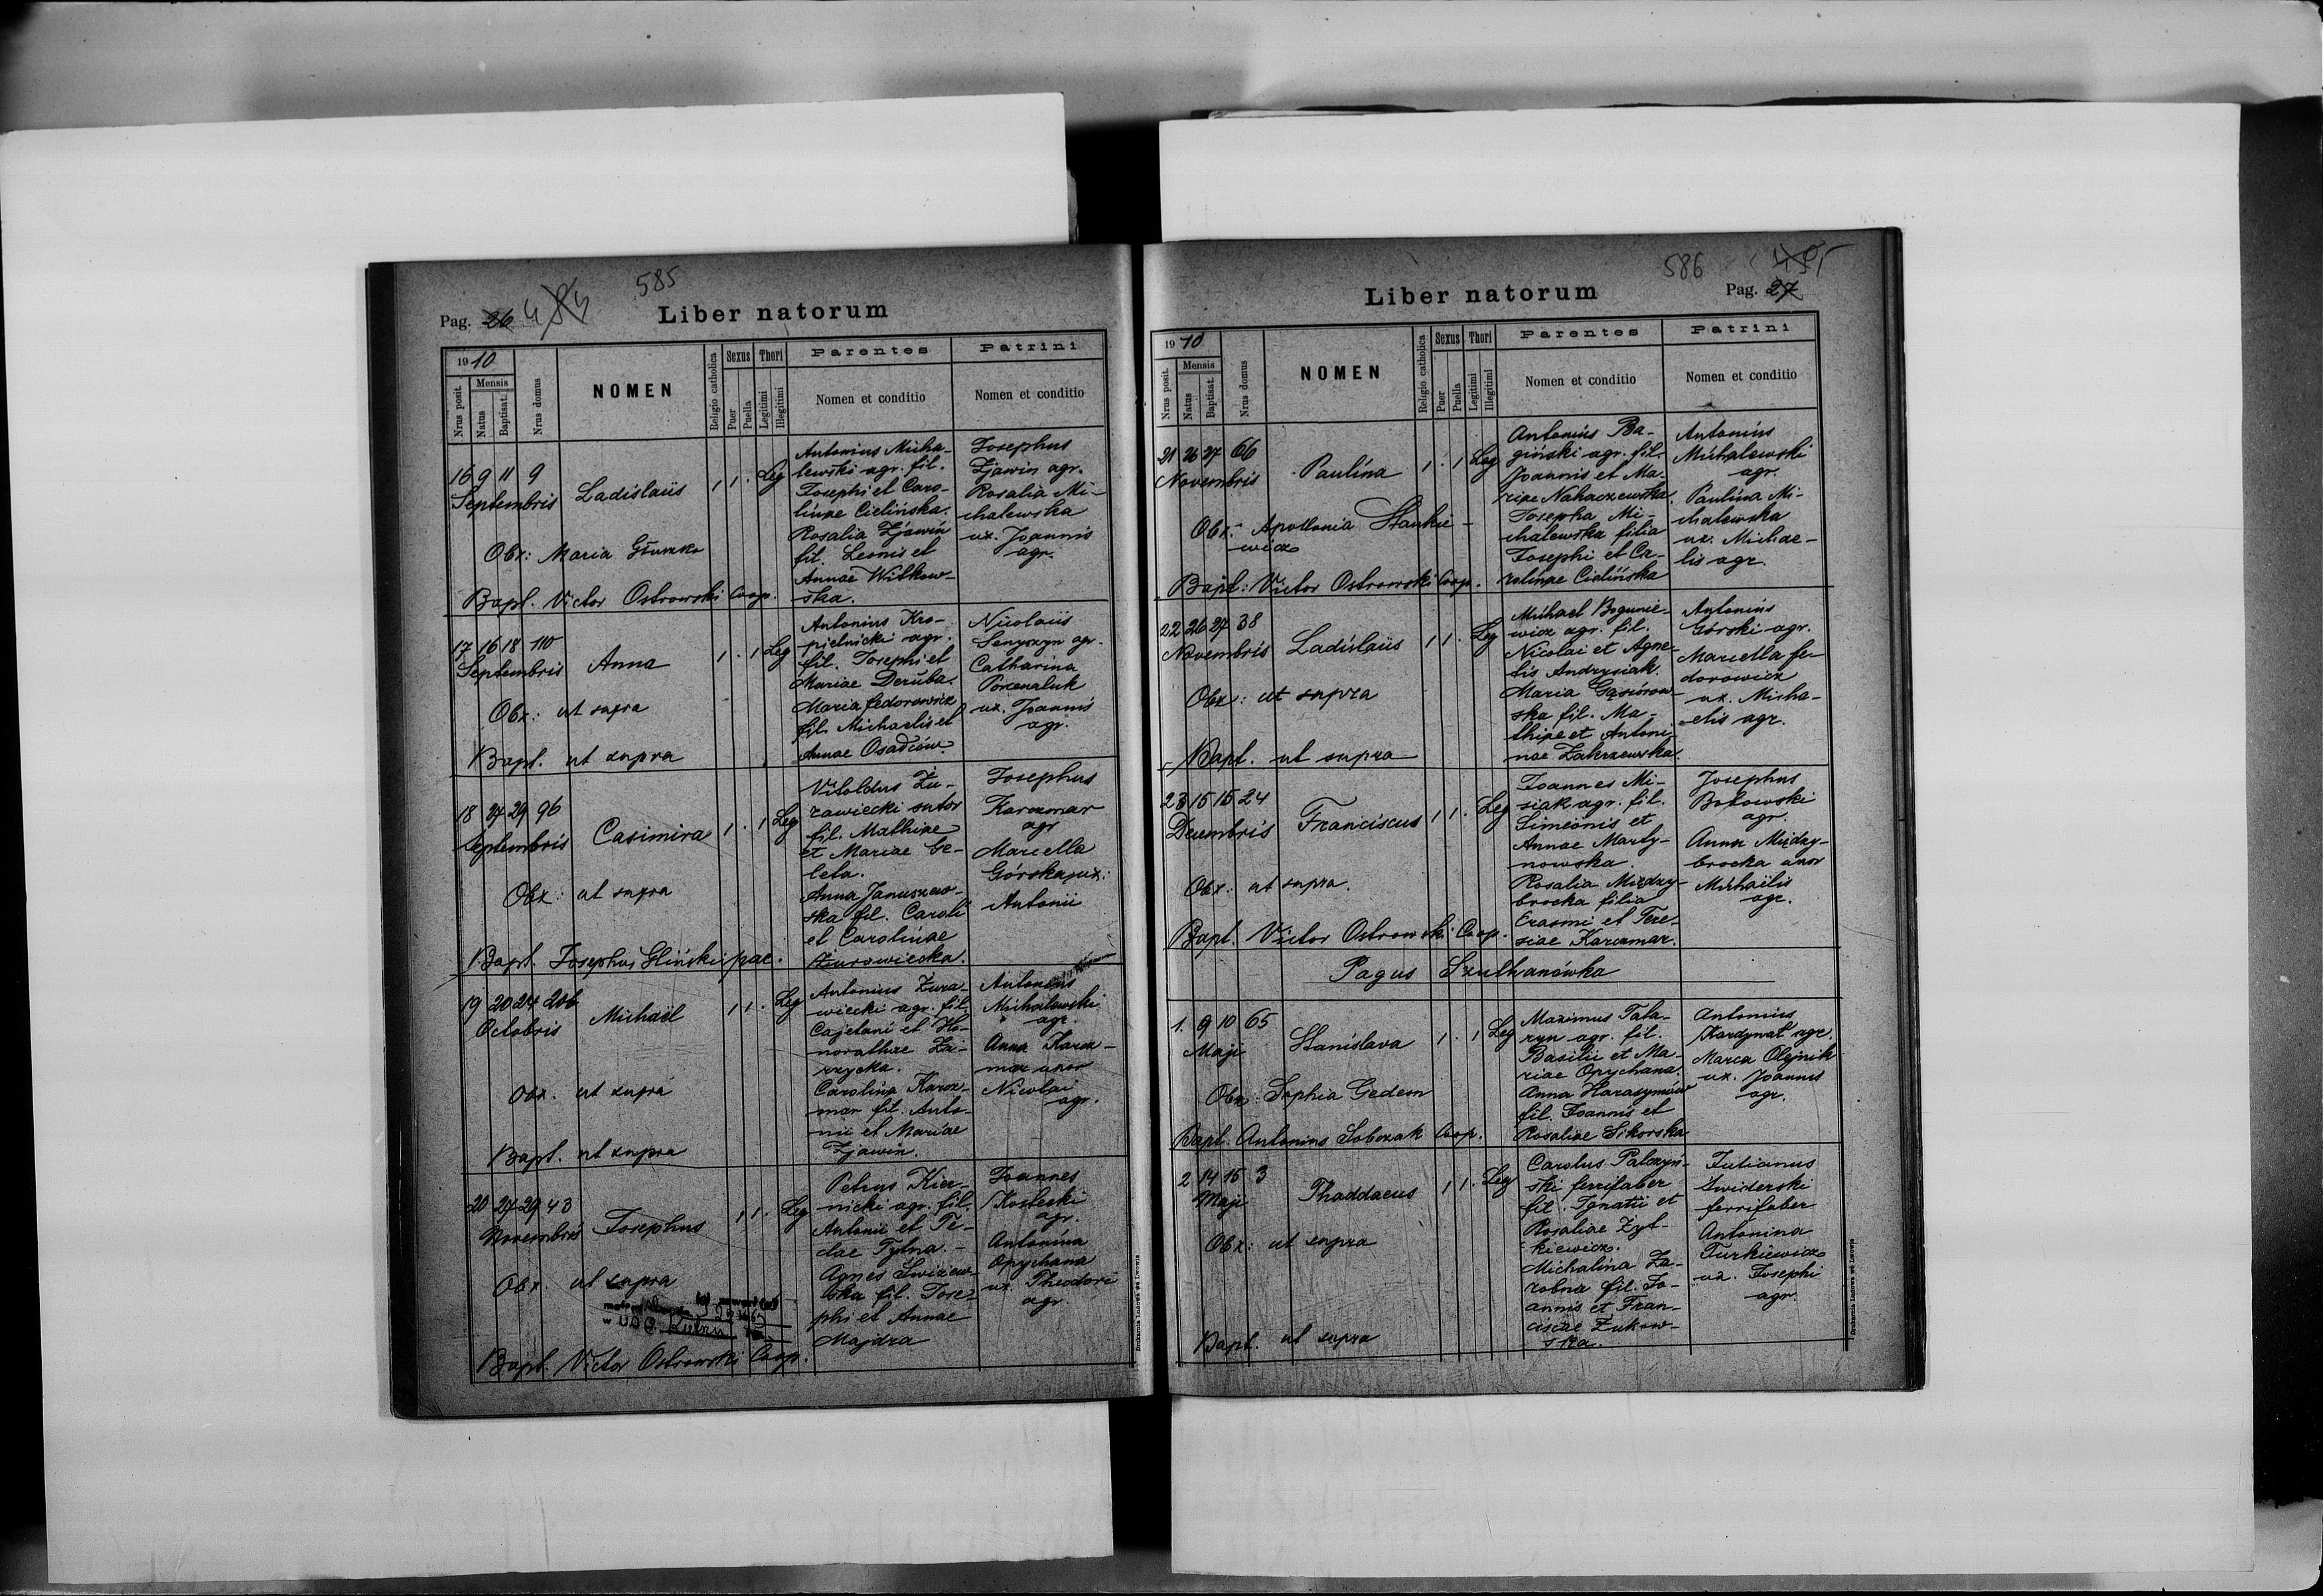 585
Pag. 26 484
Liber natorum
1910
Nrus posit.
Mensis
Natus
Baptisat.
Nrus domus
NOMEN
Religio catholica
Sexus
Puer
Puella
Thori
Legitimi
Illegitimi
Parentes
Nomen et conditio
Patrini
Nomen et conditio
16 9 11 9
Septembris
Ladislaüs
1 1 . Leg
Obx: Maria Głuszko
Bapt. Victor Ostrowski Coop.
Antonius Micha-
lewski agr. fil.
Josephi et Caro-
linae Cielińska.
Rosalia Zjawin
fil. Leonis et
Annae Witkow-
ska.
Josephus
Zjawin agr.
Rosalia Mi-
chalewska
ux. Joannis
agr.
17 16 18 110
Septembris
Anna
1 . 1 Leg
Obx: ut supra
Bapt. ut supra
Antonius Kro-
pielnicki agr.
fil. Josephi et
Mariae Deruba.
Maria Fedorowicz
fil. Michaelis et
Annae Osadców.
Nicolaüs
Senyszyn agr.
Catharina
Poxenaluk
ux. Joannis
agr.
18 27 29 96
Septembris
Casimira
1 . 1 Leg
Obx: ut supra
Bapt. Josephus Gliński par.
Vitoldus Żu-
rawiecki sutor
fil. Mathiae
et Mariae Ge-
leta.
Anna Januszew-
ska fil. Caroli
et Carolinae
Żurowiecka.
Josephus
Karczmar
agr
Marcella
Górska ux.
Antonii
19 20 24 206
Octobris
Michaël
1 1 . Leg
Obx. ut supra
Bapt. ut supra
Antonius Żura-
wiecki agr. fil.
Cajetani et Ho-
norathae Za-
rzycka.
Carolina Karcz-
mar fil. Anto-
nii et Mariae
Zjawin.
Antonius
Michalewski
agr.
Anna Karcz-
mar uxor
Nicolai
agr.
20 27 29 43
Novembris
Josephus
1 1 . Leg
Obx. ut supra
Bapt. Victor Ostrowski Coop.
Petrus Kier-
nicki agr. fil.
Antonii et Te-
clae Tylna. -
Agnes Świżew-
ska fil. Jose-
phi et Annae
Majdza
Joannes
Kostecki
agr.
Antonina
Opychana
ux. Theodori
agr.
Drukarnia Ludowa we Lwowie
586
Liber natorum
Pag. 27
1910
Nrus posit.
Mensis
Natus
Baptisat.
Nrus domus
NOMEN
Religio catholica
Sexus
Puer
Puella
Thori
Legitimi
Illegitimi
Parentes
Nomen et conditio
Patrini
Nomen et conditio
21 26 27 66
Novembris
Paulina
1 . 1 Leg
Obx: Apollonia Stankie-
wicz
Bapt: Victor Ostrowski Coop.
Antonius Ba-
giński agr. fil.
Joannis et Ma-
riae Nahaczewska.
Josepha Mi-
chalewska filia
Josephi et Ca-
rolinae Cielińska
Antonius
Michalewski
agr.
Paulina Mi-
chalewska
ux. Michae-
lis agr.
22 26 27 38
Novembris
Ladislaüs
1 1 . Leg
Obx: ut supra
Bapt. ut supra
Michael Bogunie-
wicz agr. fil.
Nicolai et Agne-
tis Andrysiak.
Maria Gąsiorow-
ska fil. Ma-
thiae et Antoni-
nae Zakrzewska.
Antonius
Górski agr.
Marcella Fe-
dorowicz
ux. Micha-
elis agr.
23 15 15 24
Decembris
Franciscus
1 1 . Leg
Obx: ut supra.
Bapt. Victor Ostrowski Coop.
Joannes Mi-
siak agr. fil.
Simeonis et
Annae Marty-
nowska.
Rosalia Miedzy-
brocka filia
Erasmi et Tere-
siae Karczmar.
Josephus
Botowski
agr.
Anna Miedzy-
brocka uxor
Michaëlis
agr.
Pagus Szulhanówka
1. 9 10 65
Maji
Stanislava
1 . 1 Leg
Obx: Sophia Gedem
Bapt. Antonius Sobczak Coop.
Maximus Tata-
ryn agr. fil.
Basilii et Ma-
riae Opychana.
Anna Harasymów
fil. Joannis et
Rosaliae Sikorska
Antonius
Kardynał agr.
Maria Olejnik
ux. Joannis
agr.
2 14 15 3
Maji
Thaddaeus
1 1 . Leg
Obx: ut supra
Bapt. ut supra
Carolus Palczyń-
ski ferrifaber
fil. Ignatii et
Rosaliae Żyt-
kiewicz.
Michalina Za-
robna fil. Jo-
annis et Fran-
ciscae Żukow-
ska.
Julianus
Świderski
ferrifaber
Antonina
Turkiewicz
ux. Josephi
agr.
Drukarnia Ludowa we Lwowie